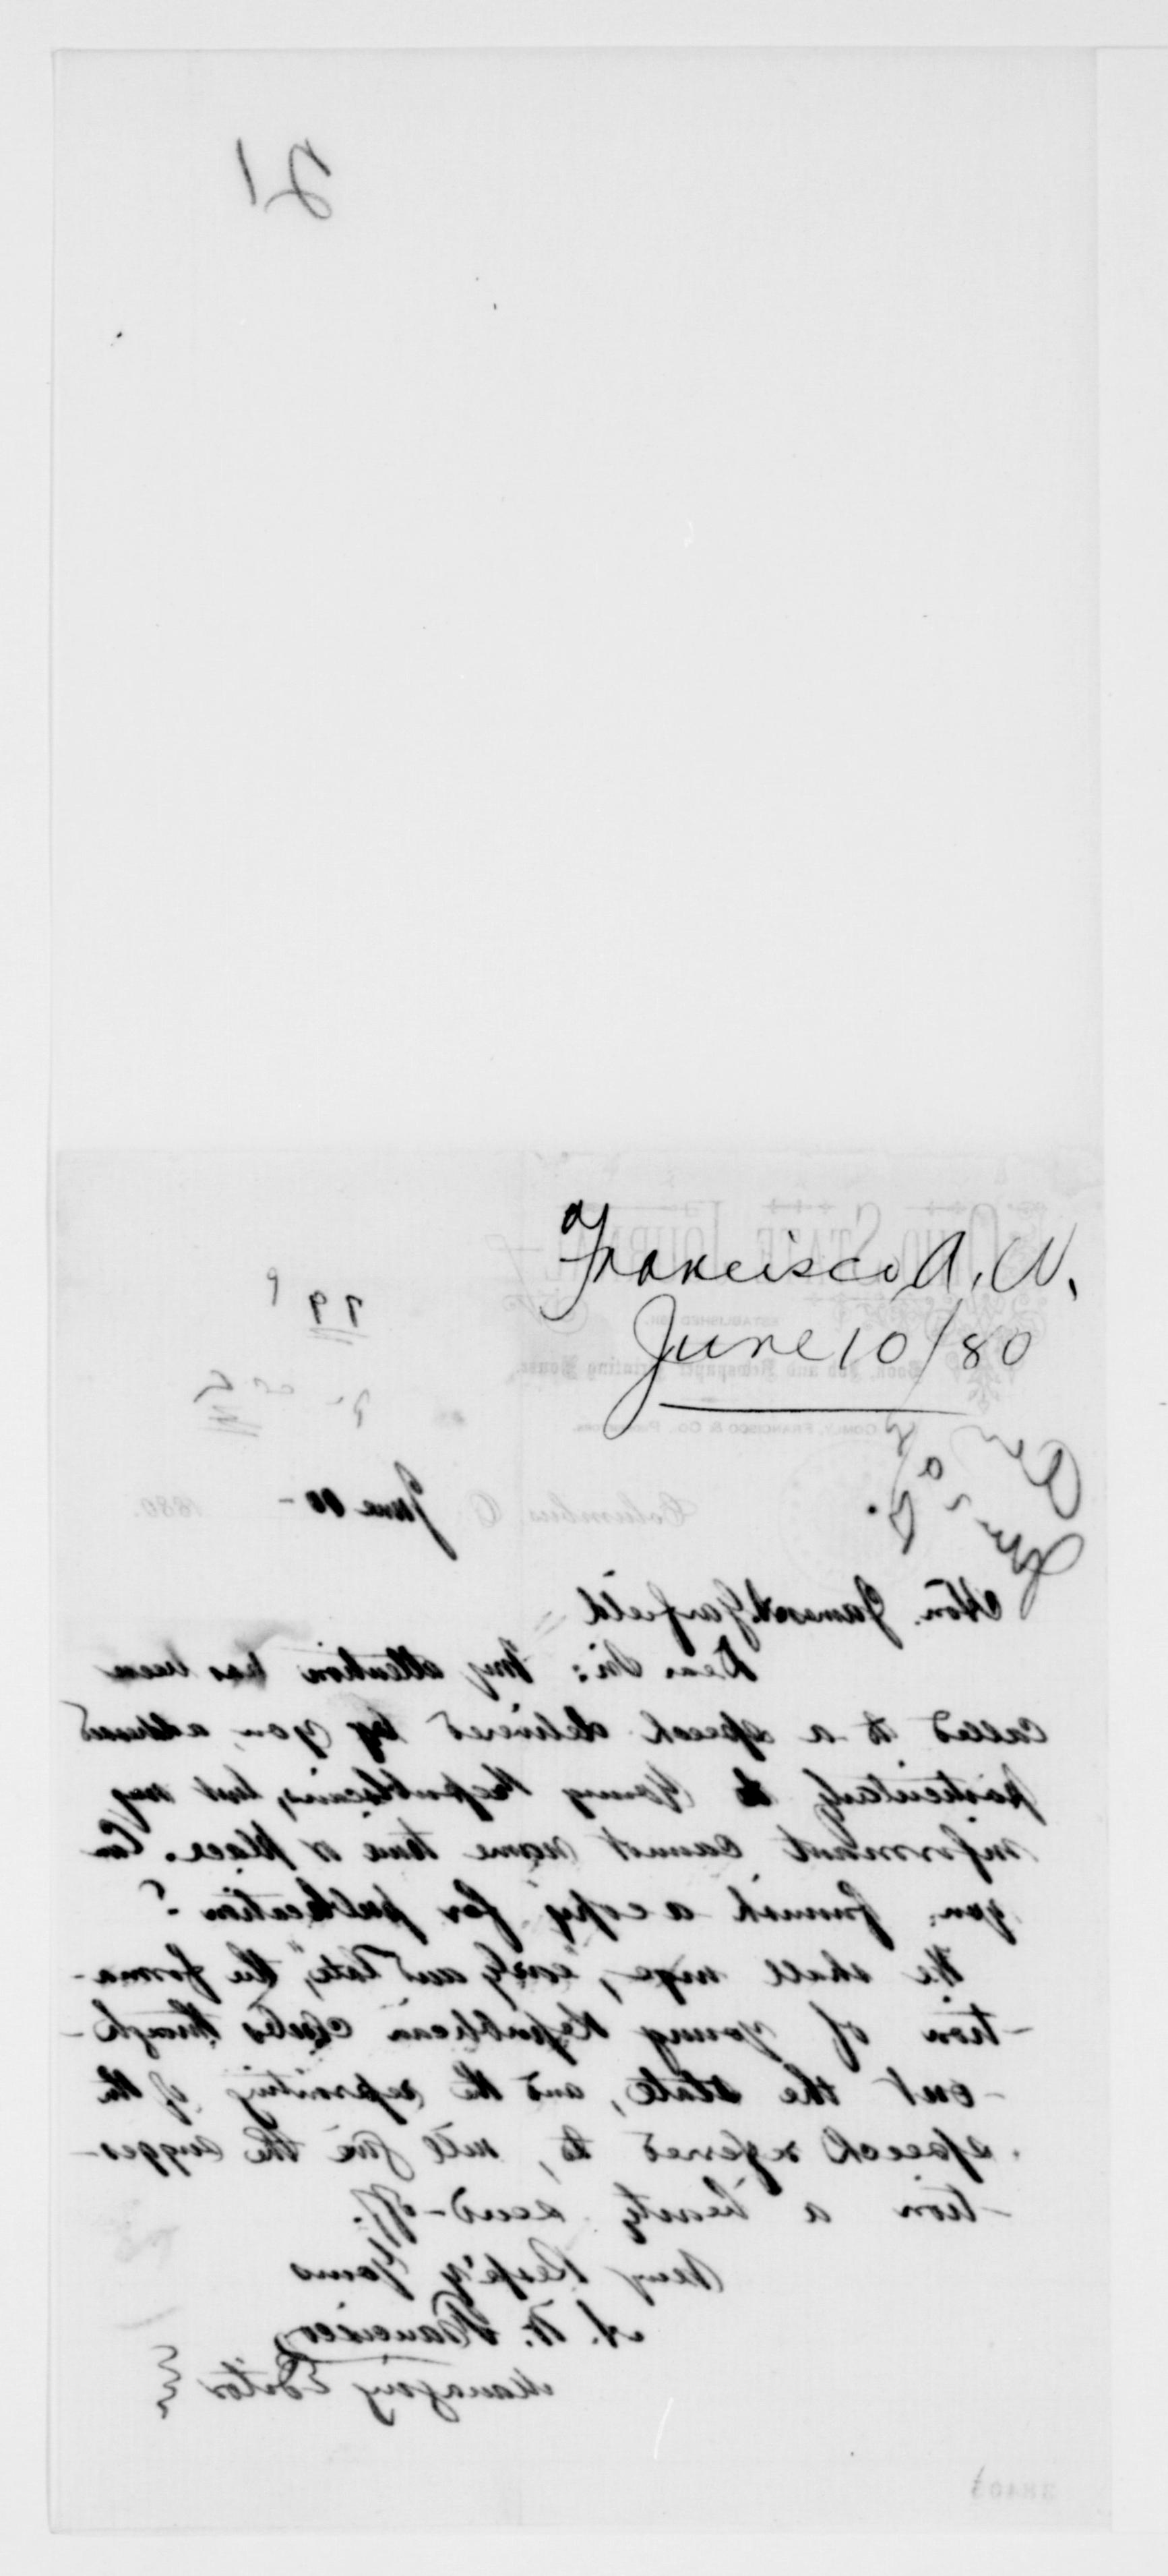 21
Francisco A. W.
June 10/80
OHIO STATE JOURNAL
ESTABLISHED 1811.
Book, Job and Newspaper Printing House.
COMLY, FRANCISCO & CO., Publishers.
Columbus, O. June 10 - 1880.
Hon. James A. Garfield
Dear Sir: My attention has been
called to a speech delivered by you, addressed
particularly to Young Republicans, but my
informant cannot name time or place. Can
you furnish a copy for publication?
We shall urge, "early and late," the forma-
-tion of young Republican clubs through-
-out the state, and the reprinting of the
speech referred to, will give the sugges-
-tion a hearty send-off.
Very Resp'y Yours
A. W. Francisco
Managing Editor